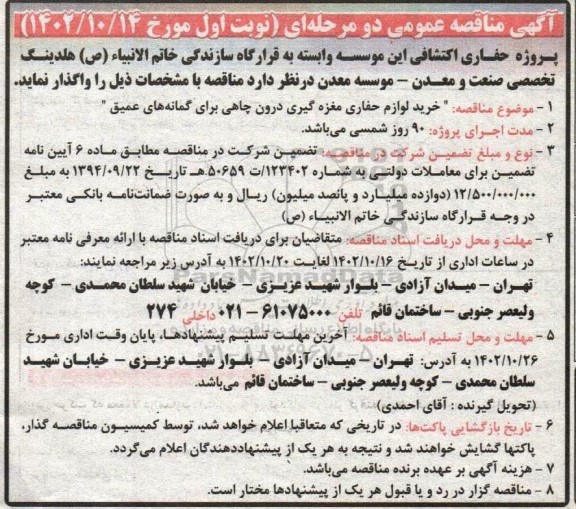 آگهی مناقصه عمومی دو مرحله‌ای (نوبت اول مورخ ۱۴۰۲/۱۰/۱۴)
پروژه حفاری اکتشافی این موسسه وابسته به قرارگاه سازندگی خاتم الانبیاء (ص) هلدینگ
تخصصی صنعت و معدن – موسسه معدن درنظر دارد مناقصه با مشخصات ذیل را واگذار نماید.
۱ – موضوع مناقصه: " خرید لوازم حفاری مغزه گیری درون چاهی برای گمانه‌های عمیق "
۲ – مدت اجرای پروژه: ۹۰ روز شمسی می‌باشد.
۳ – نوع و مبلغ تضمین شرکت در مناقصه: تضمین شرکت در مناقصه مطابق ماده ۶ آیین نامه
تضمین برای معاملات دولتی به شماره ۱۲۳۴۰۲/ت۵۰۶۵۹هـ تاریخ ۱۳۹۴/۰۹/۲۲ به مبلغ
۱۲/۵۰۰/۰۰۰/۰۰۰ (دوازده میلیارد و پانصد میلیون) ریال و به صورت ضمانت‌نامه بانکی معتبر
در وجه قرارگاه سازندگی خاتم الانبیاء (ص)
۴ – مهلت و محل دریافت اسناد مناقصه: متقاضیان برای دریافت اسناد مناقصه با ارائه معرفی نامه معتبر
در ساعات اداری از تاریخ ۱۴۰۲/۱۰/۱۶ لغایت ۱۴۰۲/۱۰/۲۰ به آدرس زیر مراجعه نمایند:
تهران – میدان آزادی – بلوار شهید عزیزی – خیابان شهید سلطان محمدی – کوچه
ولیعصر جنوبی – ساختمان قائم تلفن ۶۱۰۷۵۰۰۰–۰۲۱ داخلی ۲۷۴
۵ – مهلت و محل تسلیم اسناد مناقصه: آخرین مهلت تسلیم پیشنهادها، پایان وقت اداری مورخ
۱۴۰۲/۱۰/۲۶ به آدرس: تهران – میدان آزادی – بلوار شهید عزیزی – خیابان شهید
سلطان محمدی – کوچه ولیعصر جنوبی – ساختمان قائم می‌باشد.
(تحویل گیرنده : آقای احمدی)
۶ – تاریخ بازگشایی پاکت‌ها: در تاریخی که متعاقبا اعلام خواهد شد، توسط کمیسیون مناقصه گذار،
پاکتها گشایش خواهند شد و نتیجه به هر یک از پیشنهاددهندگان اعلام می‌گردد.
۷ – هزینه آگهی بر عهده برنده مناقصه می‌باشد.
۸ – مناقصه گزار در رد و یا قبول هر یک از پیشنهادها مختار است.